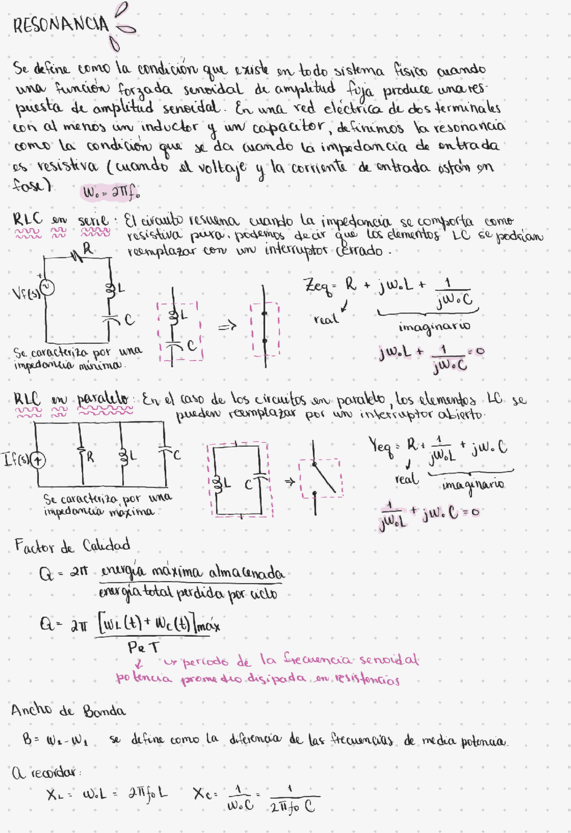 RESONANCIA
Se define como la condición que existe en todo sistema físico cuando
una función forzada senoidal de amplitud fija produce una res-
puesta de amplitud senoidal. En una red eléctrica de dos terminales
con al menos un inductor y un capacitor, definimos la resonancia
como la condición que se da cuando la impedancia de entrada
es resistiva (cuando el voltaje y la corriente de entrada están en
fase)
ω₀ = 2πf₀
RLC en serie: El circuito resuena cuando la impedancia se comporta como
resistiva pura, podemos decir que los elementos LC se podrían
reemplazar con un interruptor cerrado.
R
Vf(s)
L
C
L
C
=>
Zeq = R + jω₀L + 1/jω₀C
real
imaginario
jω₀L + 1/jω₀C = 0
Se caracteriza por una
impedancia mínima.
RLC en paralelo: En el caso de los circuitos en paralelo, los elementos LC se
pueden reemplazar por un interruptor abierto.
If(s)
R
L
C
L
C
=>
Yeq = R + 1/jω₀L + jω₀C
real
imaginario
1/jω₀L + jω₀C = 0
Se caracteriza por una
impedancia máxima.
Factor de Calidad
Q = 2π energía máxima almacenada / energía total perdida por ciclo
Q = 2π [WL(t) + Wc(t)]máx / PRT
↙ ↘ periodo de la frecuencia senoidal
potencia promedio disipada en resistencias
Ancho de Banda
B = ω₂ - ω₁ se define como la diferencia de las frecuencias de media potencia.
A recordar:
XL = ω₀L = 2πf₀L Xc = 1/ω₀C = 1/2πf₀C